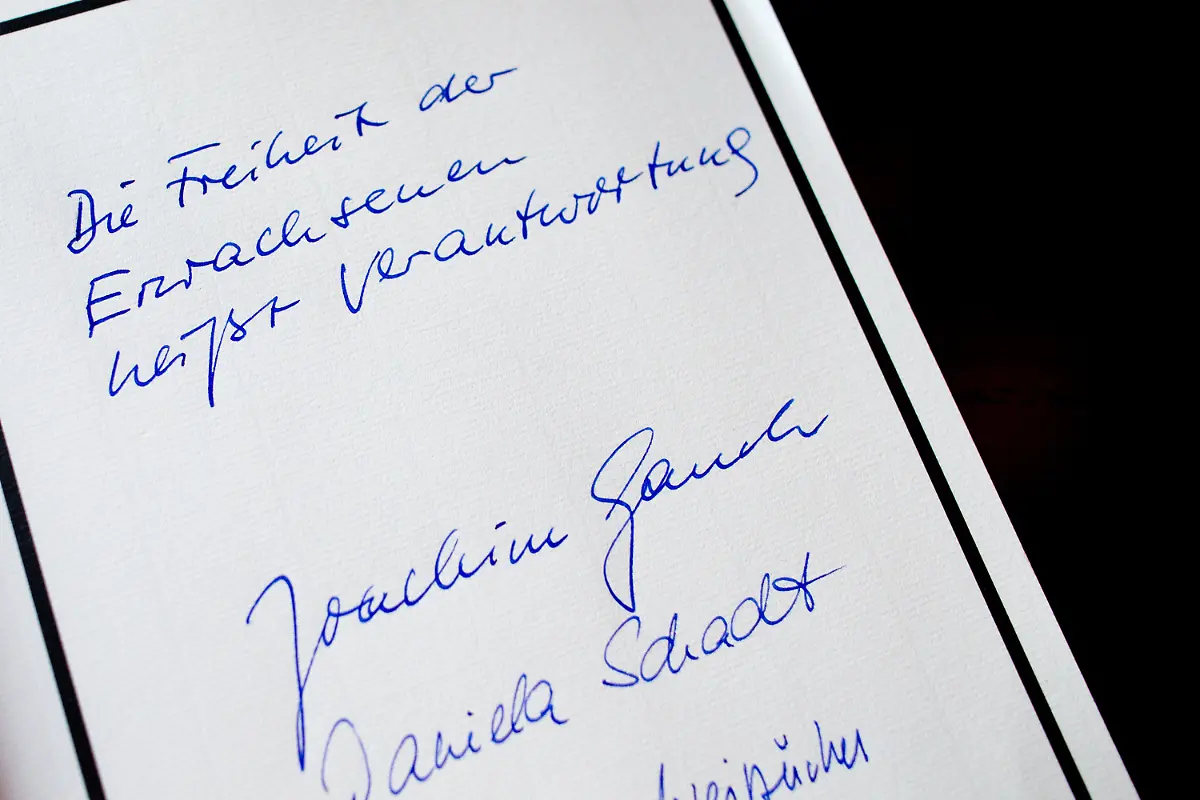 Die Freiheit der
Erwachsenen
heißt Verantwortung
Joachim Gauck
Daniela Schadt